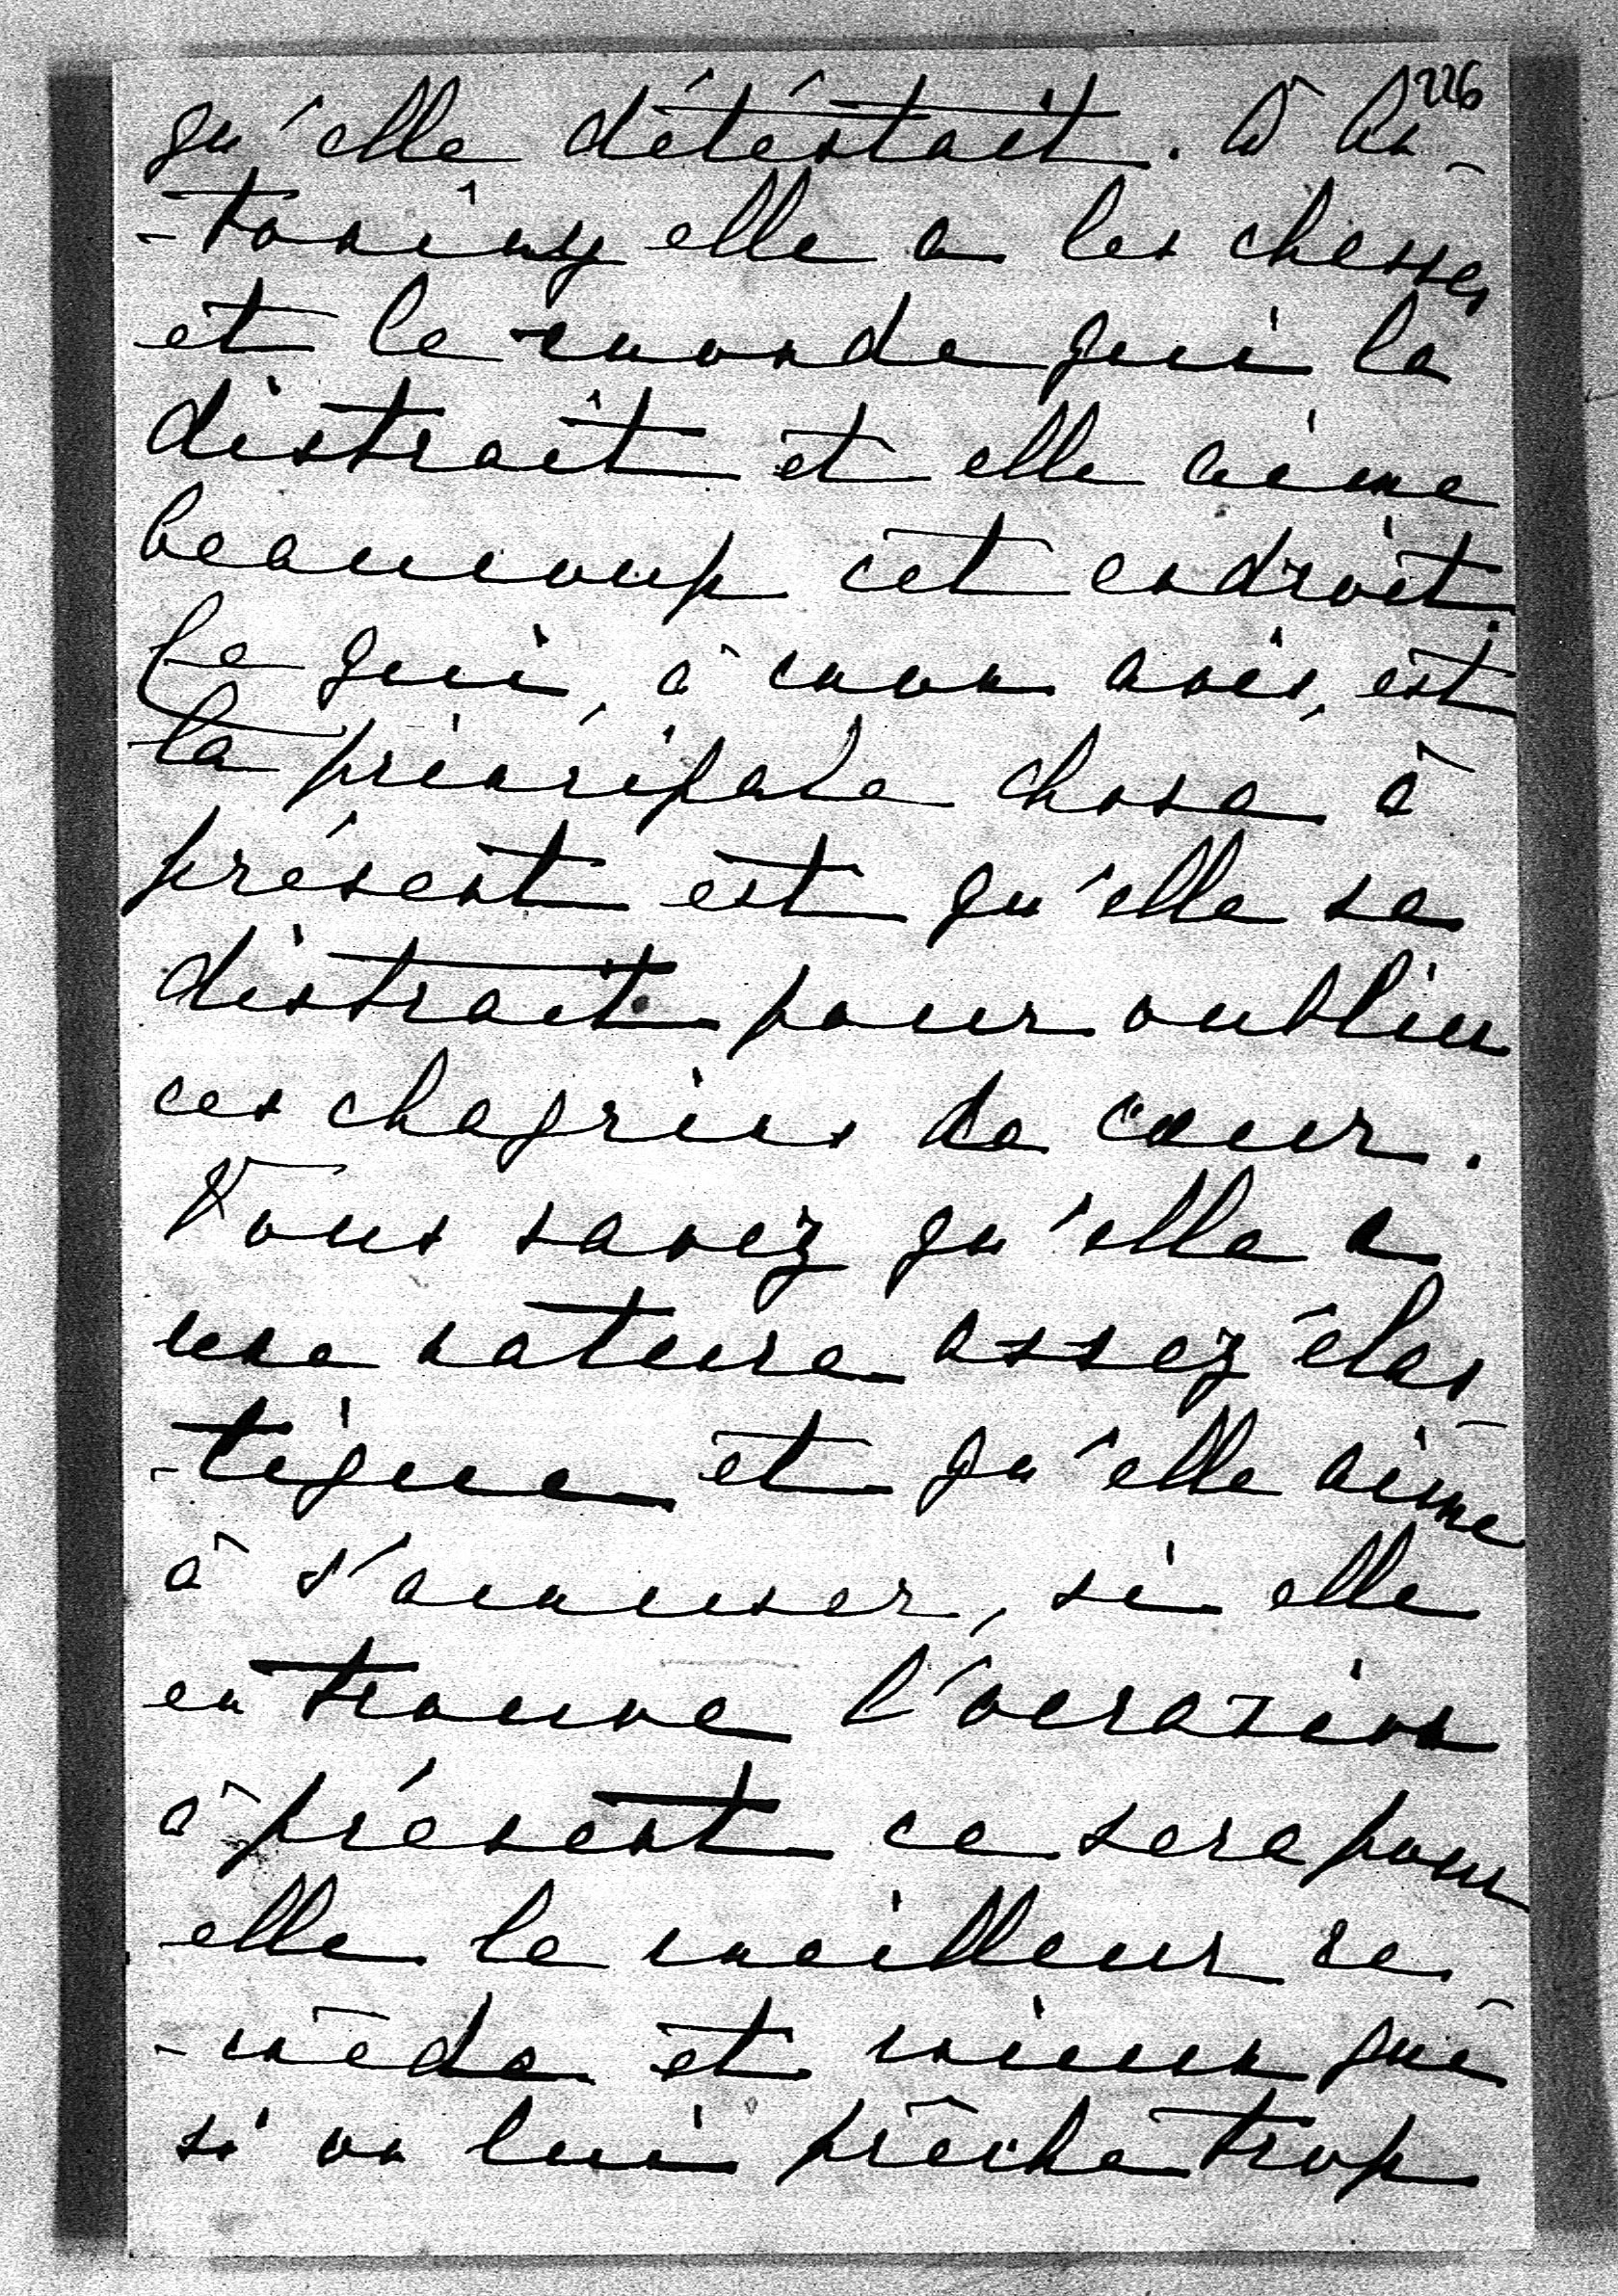 226
qu'elle détéstait. À An-
-toniny elle a les chasses
et le monde qui la
distraît et elle aime
beaucoup cet endroit.
Ce qui, à mon avis, est
la principale chose à
présent est qu'elle se
distrait pour oublier
ces chagrins de cœur.
Vous savez qu'elle a
une nature assez élas-
-tique et qu'elle aime
à s'amuser, si elle
en trouve l'ocasion
à présent ce sera pour
elle le meilleur re-
-mède et mieux que
si on lui prêche trop